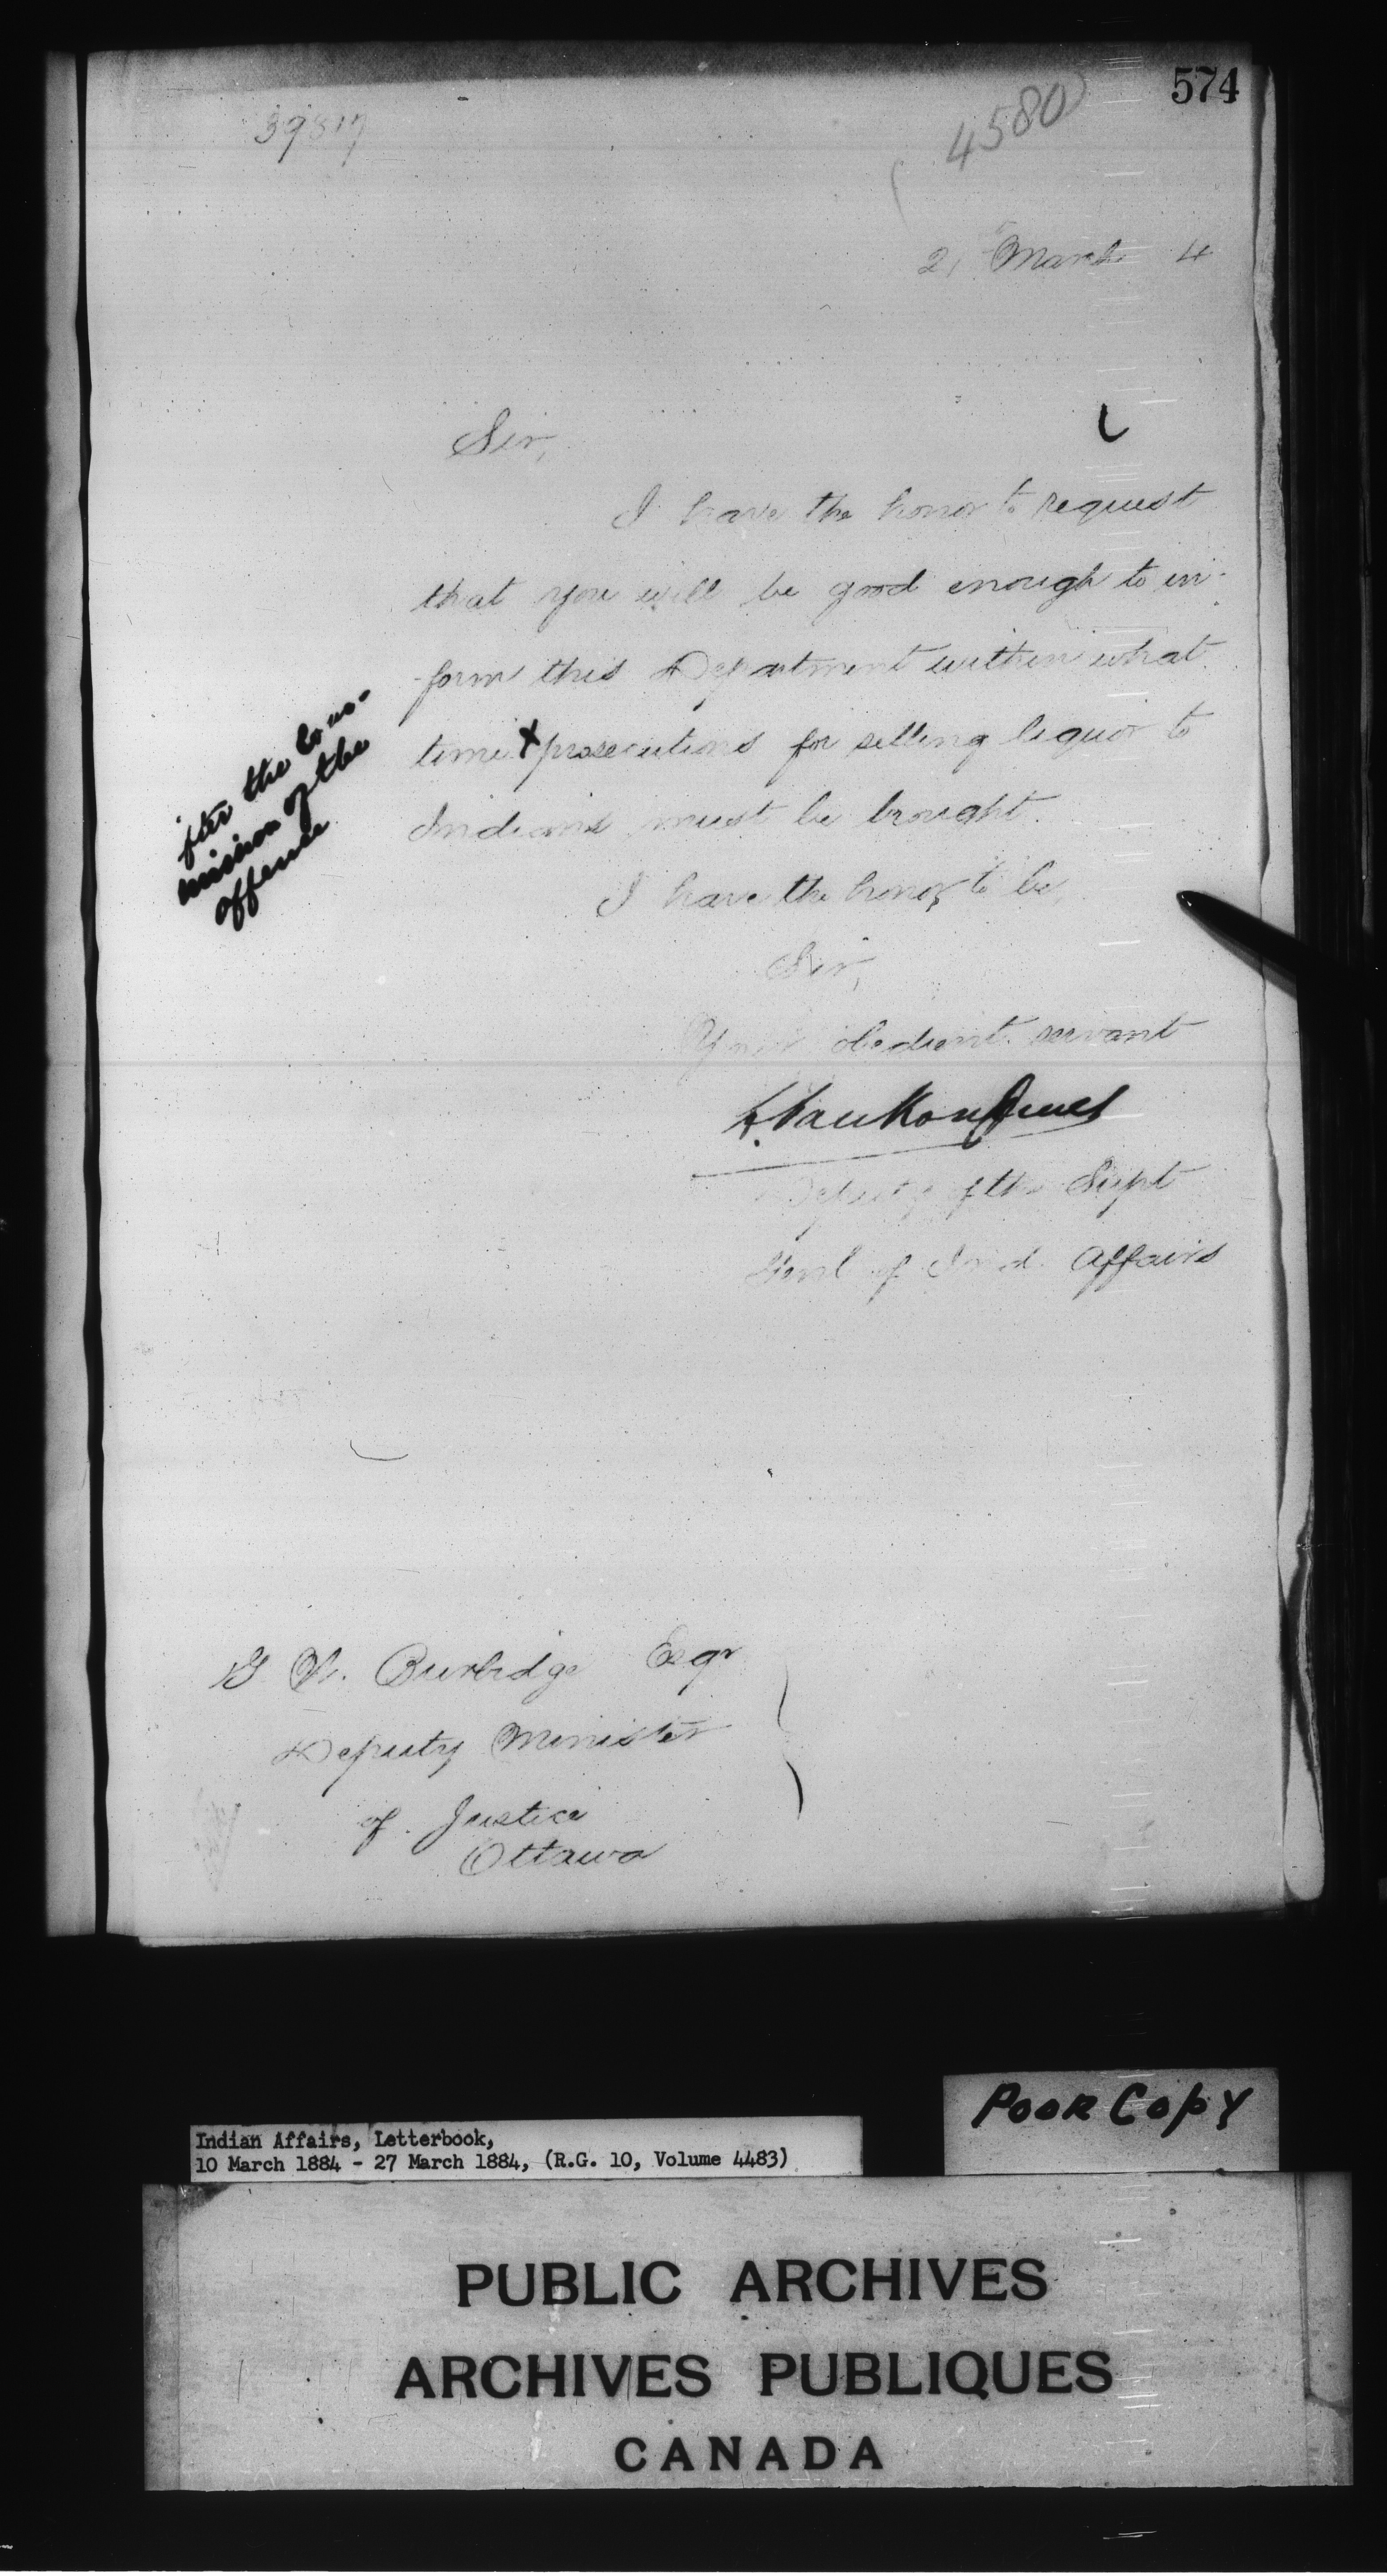 574
39817
4580
21 March 4
Sir,
I have the honor to request
that you will be good enough to in-
form this Department within what
time x prosecutions for selling liquor to
Indians must be brought.
fter the Com-
mission of the
offense
I have the honor to be,
Sir,
Your obedient servant
L. VanKoughnet
Deputy of the Supt
Genl of Ind. Affairs
G W. Burbidge Esqr
Deputy Minister
of Justice
Ottawa
Poor Copy
Indian Affairs, Letterbook,
10 March 1884 - 27 March 1884, (R.G. 10, Volume 4483)
PUBLIC ARCHIVES
ARCHIVES PUBLIQUES
CANADA